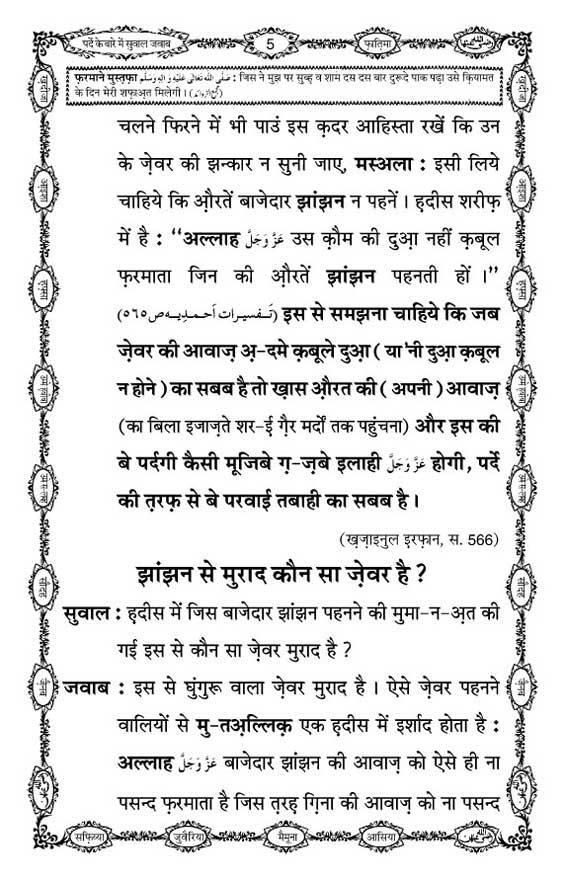 पर्दे के बारे में सुवाल जवाब
5
फ़ातिमा
फ़रमाने मुस्त़फ़ा صَلَّى اللهُ تَعَالٰى عَلَيْهِ وَاٰلِهٖ وَسَلَّم : जिस ने मुझ पर सुब्ह़ व शाम दस दस बार दुरूदे पाक पढ़ा उसे क़ियामत
के दिन मेरी शफ़ाअ़त मिलेगी।
चलने फिरने में भी पाउं इस क़दर आहिस्ता रखें कि उन
के ज़ेवर की झन्कार न सुनी जाए, मस्अला : इसी लिये
चाहिये कि औ़रतें बाजेदार झांझन न पहनें। ह़दीस शरीफ़
में है : ‘‘अल्लाह عَزَّوَجَلَّ उस क़ौम की दुआ़ नहीं क़बूल
फ़रमाता जिन की औ़रतें झांझन पहनती हों ।’’
(تَفسیرات اَحمدِیہ ص٥٦٥) इस से समझना चाहिये कि जब
ज़ेवर की आवाज़ अ़-दमे क़बूले दुआ़ ( या'नी दुआ़ क़बूल
न होने ) का सबब है तो ख़ास औ़रत की ( अपनी ) आवाज़
(का बिला इजाज़ते शर-ई़ ग़ैर मर्दों तक पहुंचना) और इस की
बे पर्दगी कैसी मूजिबे ग़-ज़बे इलाही عَزَّوَجَلَّ होगी, पर्दे
की त़रफ़ से बे परवाई तबाही का सबब है।
(ख़ज़ाइनुल इरफ़ान, स. 566)
झांझन से मुराद कौन सा ज़ेवर है ?
सुवाल : ह़दीस में जिस बाजेदार झांझन पहनने की मुमा-न-अ़त की
गई इस से कौन सा ज़ेवर मुराद है ?
जवाब : इस से घुंगुरू वाला ज़ेवर मुराद है । ऐसे ज़ेवर पहनने
वालियों से मु-तअ़ल्लिक़ एक ह़दीस में इर्शाद होता है :
अल्लाह عَزَّوَجَلَّ बाजेदार झांझन की आवाज़ को ऐसे ही ना
पसन्द फ़रमाता है जिस त़रह़ ग़िना की आवाज़ को ना पसन्द
सफ़िय्या
जुवैरिया
मैमूना
आसिया